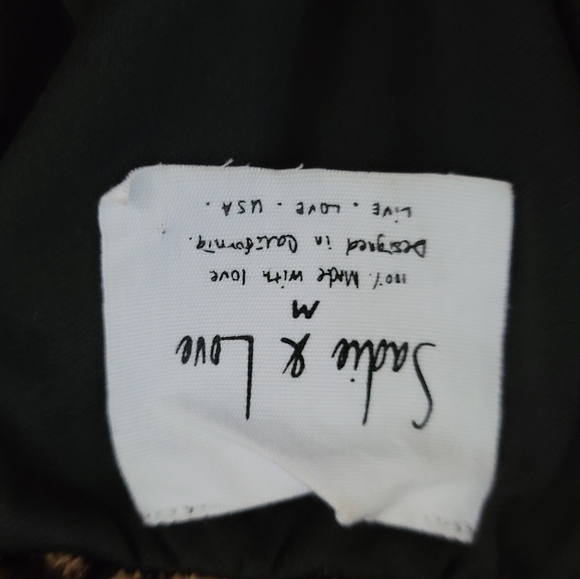 Sadie & Love
M
100% Made with love
Designed in California.
LiVE . LOVE . USA .